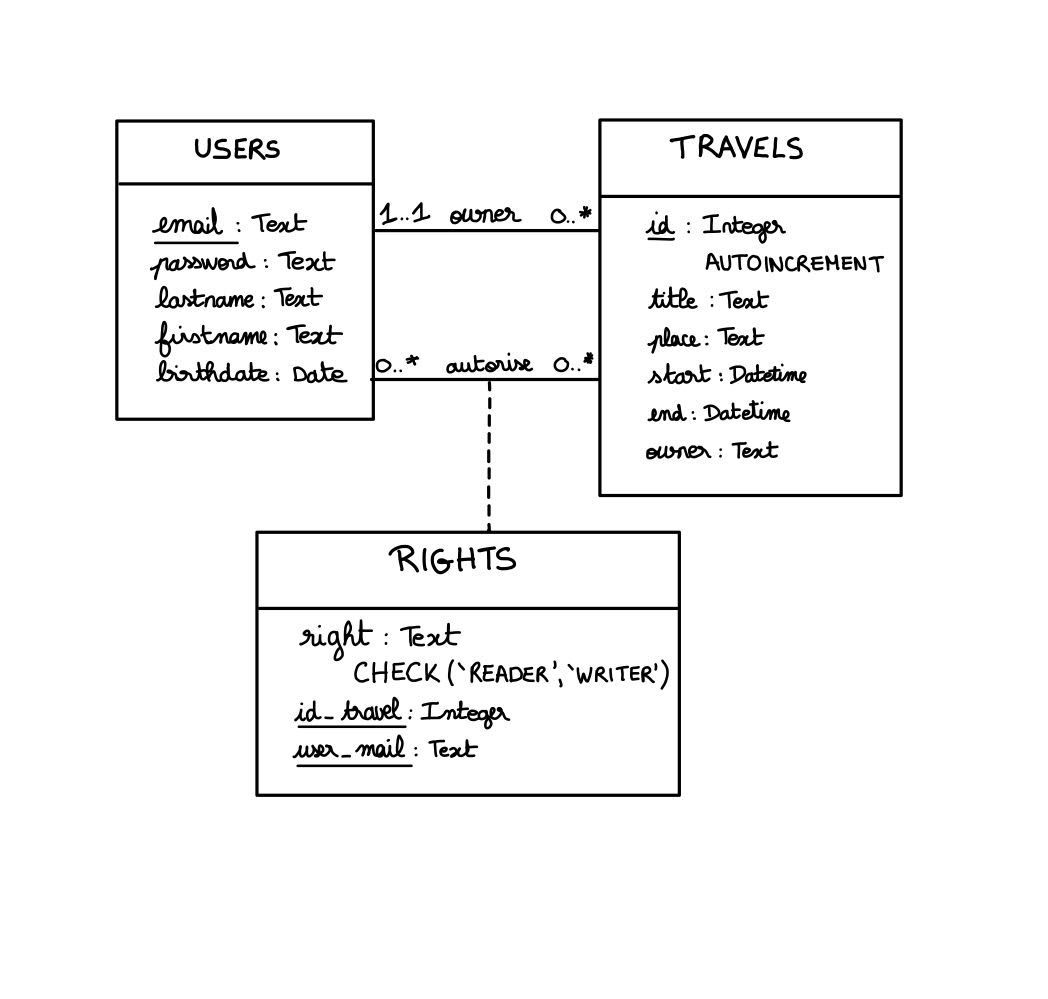 USERS
email : Text
password : Text
lastname : Text
firstname : Text
birthdate : Date
1..1 owner 0..*
0..* autorise 0..*
TRAVELS
id : Integer
AUTOINCREMENT
title : Text
place : Text
start : Datetime
end : Datetime
owner : Text
RIGHTS
right : Text
CHECK (`READER', `WRITER')
id_travel : Integer
user_mail : Text